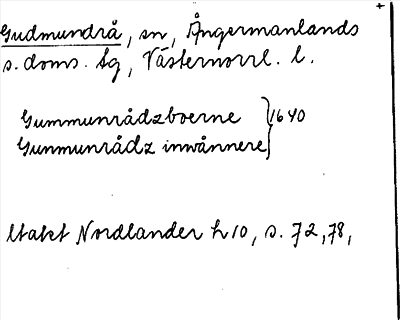 Gudmundrå, sn, Ångermanlands
s. doms. tg, Västernorrl. l.
Gummunrådzboerne } 1640
Gunmunrådz innwånnere
Utakt Nordlander h 10, s. 72, 78,